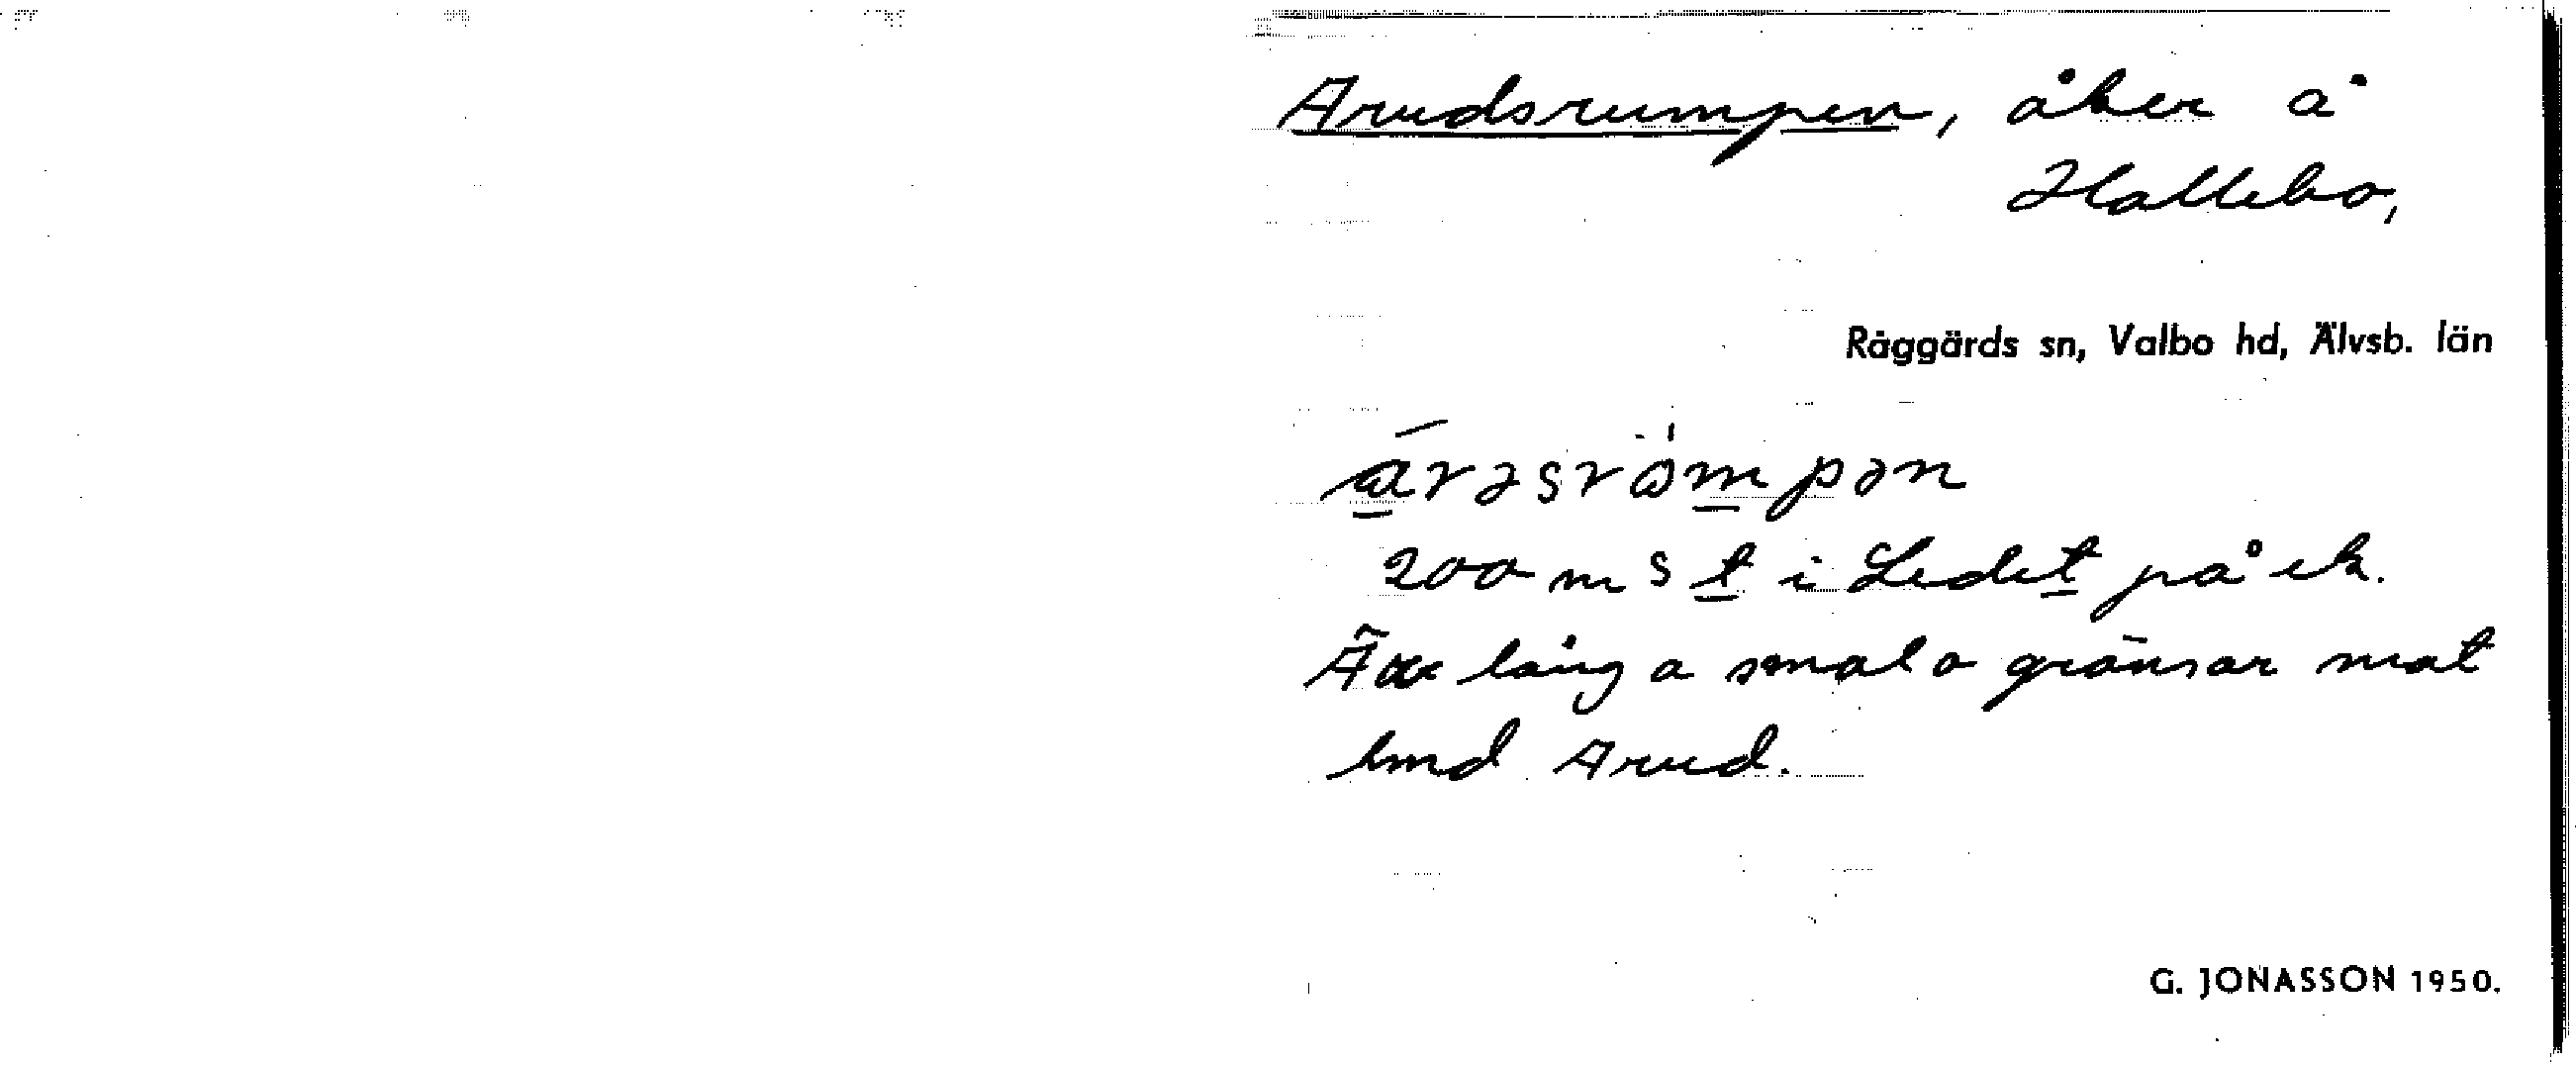 Arudsrumpen, åker å
Hallebo,
Råggärds sn, Valbo hd, Älvsb. län
200 m S t i Ledet på ek.
Är lång a smal o gränsar mot
hmd Arud.
G. JONASSON 1950.